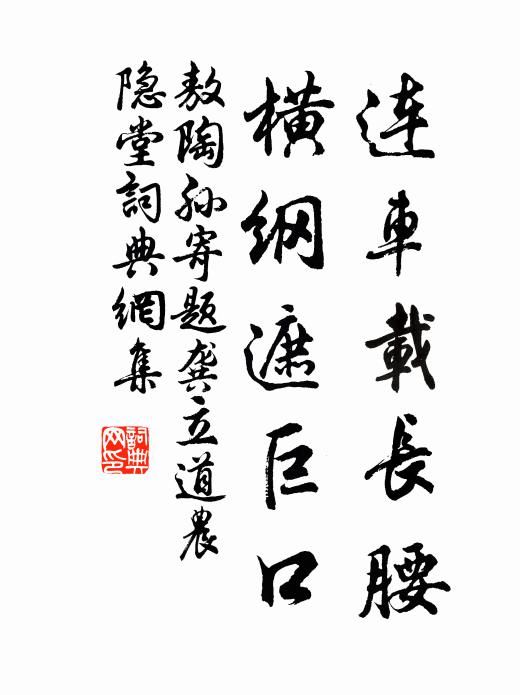 連車載長腰
橫網遮巨口
敖陶孙寄題龚立道農
隐堂詞典網集
詞典
网印